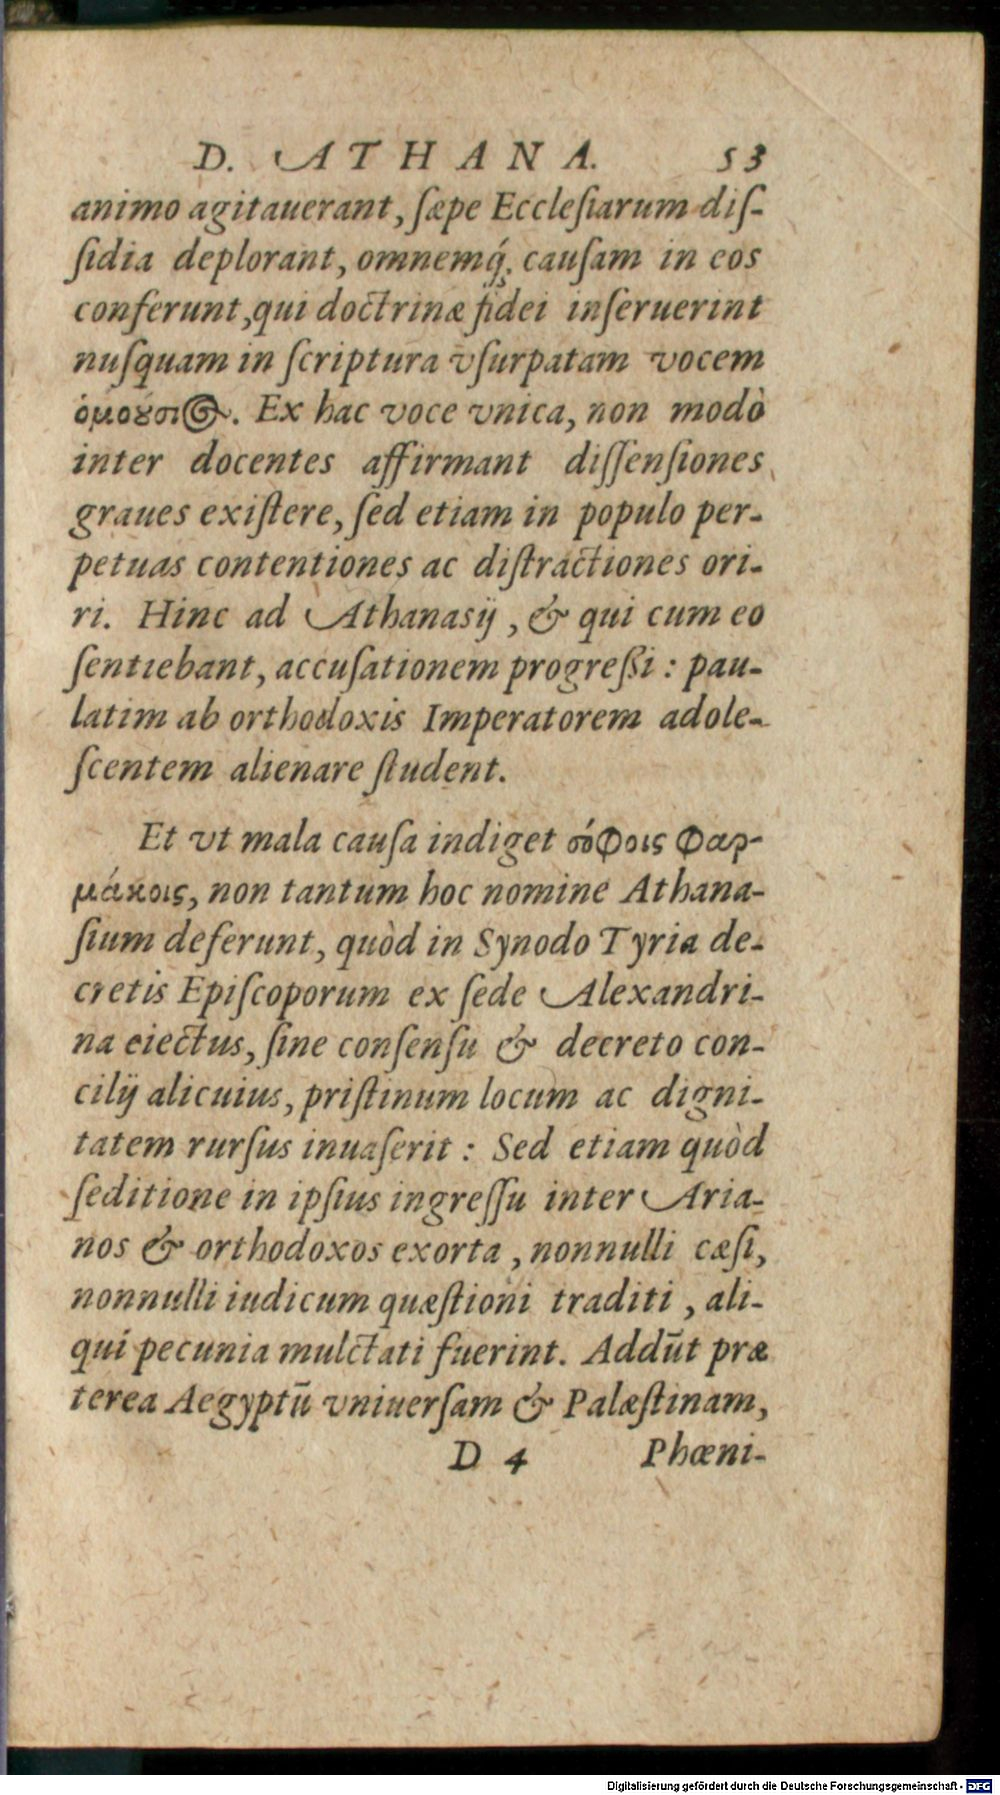 D. ATHANA. 53
animo agitauerant, sæpe Ecclesiarum dis-
sidia deplorant, omnemq́; causam in eos
conferunt, qui doctrinæ fidei inseruerint
nusquam in scriptura vsurpatam vocem
ὁμοȣ́σιος. Ex hac voce vnica, non modò
inter docentes affirmant dissensiones
graues existere, sed etiam in populo per-
petuas contentiones ac distractiones ori-
ri. Hinc ad Athanasij, & qui cum eo
sentiebant, accusationem progreßi: pau-
latim ab orthodoxis Imperatorem adole-
scentem alienare student.
Et vt mala causa indiget σόφοις φαρ-
μάκοις, non tantum hoc nomine Athana-
sium deferunt, quòd in Synodo Tyria de-
cretis Episcoporum ex sede Alexandri-
na eiectus, sine consensu & decreto con-
cilij alicuius, pristinum locum ac digni-
tatem rursus inuaserit: Sed etiam quòd
seditione in ipsius ingressu inter Aria-
nos & orthodoxos exorta, nonnulli cæsi,
nonnulli iudicum quæstioni traditi, ali-
qui pecunia mulctati fuerint. Addūt præ
terea Aegyptū vniuersam & Palæstinam,
D 4 Phœni-
Digitalisierung gefördert durch die Deutsche Forschungsgemeinschaft - DFG